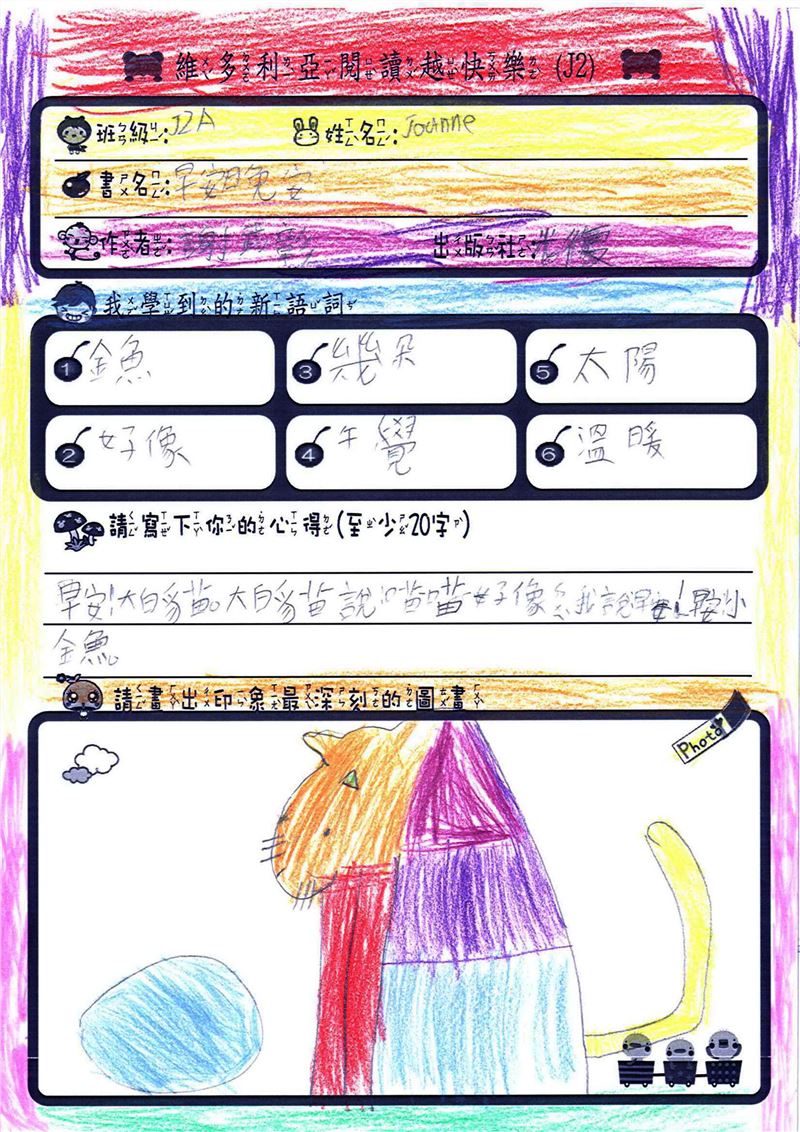 維多利亞閱讀越快樂 (J2)
班級:J2A 姓名:Joanne
書名:早安晚安
作者:謝武彰 出版社:
我學到的新語詞
1 金魚 3 幾朵 5 太陽
2 好像 4 午覺 6 溫暖
請寫下你的心得(至少20字)
早安!大白貓。大白貓說喵喵好像ㄍㄣ我說早安!早安小
金魚。
請畫出印象最深刻的圖畫
Photo